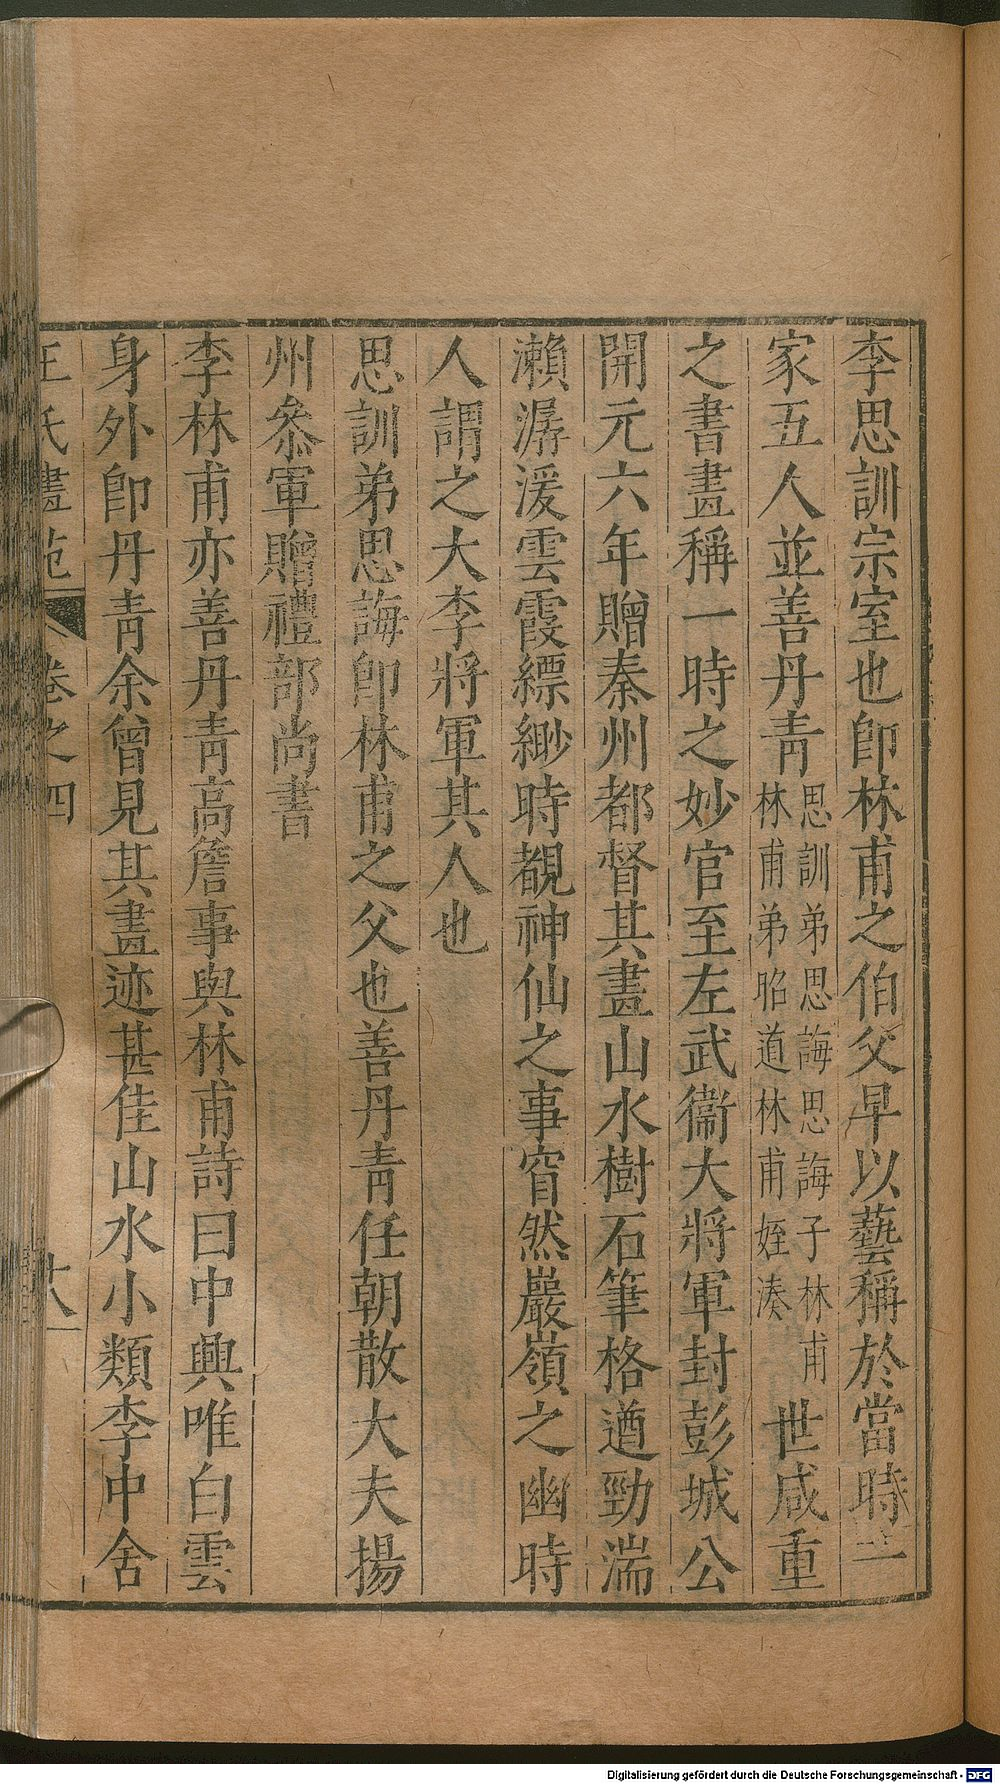 李思訓宗室也卽林甫之伯父早以藝稱於當時一
家五人並善丹靑思訓弟思誨思誨子林甫林甫弟昭道林甫姪湊世咸重
之書畫稱一時之妙官至左武衞大將軍封彭城公
開元六年贈秦州都督其畫山水樹石筆格遒勁湍
瀨潺湲雲霞縹緲時覩神仙之事窅然巖嶺之幽時
人謂之大李將軍其人也
思訓弟思誨卽林甫之父也善丹靑任朝散大夫揚
州叅軍贈禮部尚書
李林甫亦善丹靑高詹事與林甫詩曰中興唯白雲
身外卽丹靑余曾見其畫迹甚佳山水小類李中舍
王氏畫苑 卷之四 十八
Digitalisierung gefördert durch die Deutsche Forschungsgemeinschaft - DFG